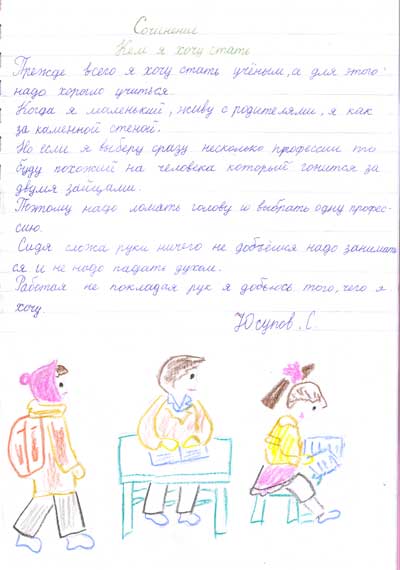 Сочинение
Кем я хочу стать
Прежде всего я хочу стать учёным, а для этого
надо хорошо учиться.
Когда я моленький, живу с родителями, я как
за каменной стеной.
Но если я выберу сразу несколько профессии то
буду похожий на человека который гонится за
двумя зайцами.
Поэтому надо ломать голову и выбрать одну профес-
сию.
Сидя сложа руки ничего не добьёшся надо занимать
ся и не надо падать духом.
Работая не покладая рук я добьюсь того, чего я
хочу.
Юсупов. С.